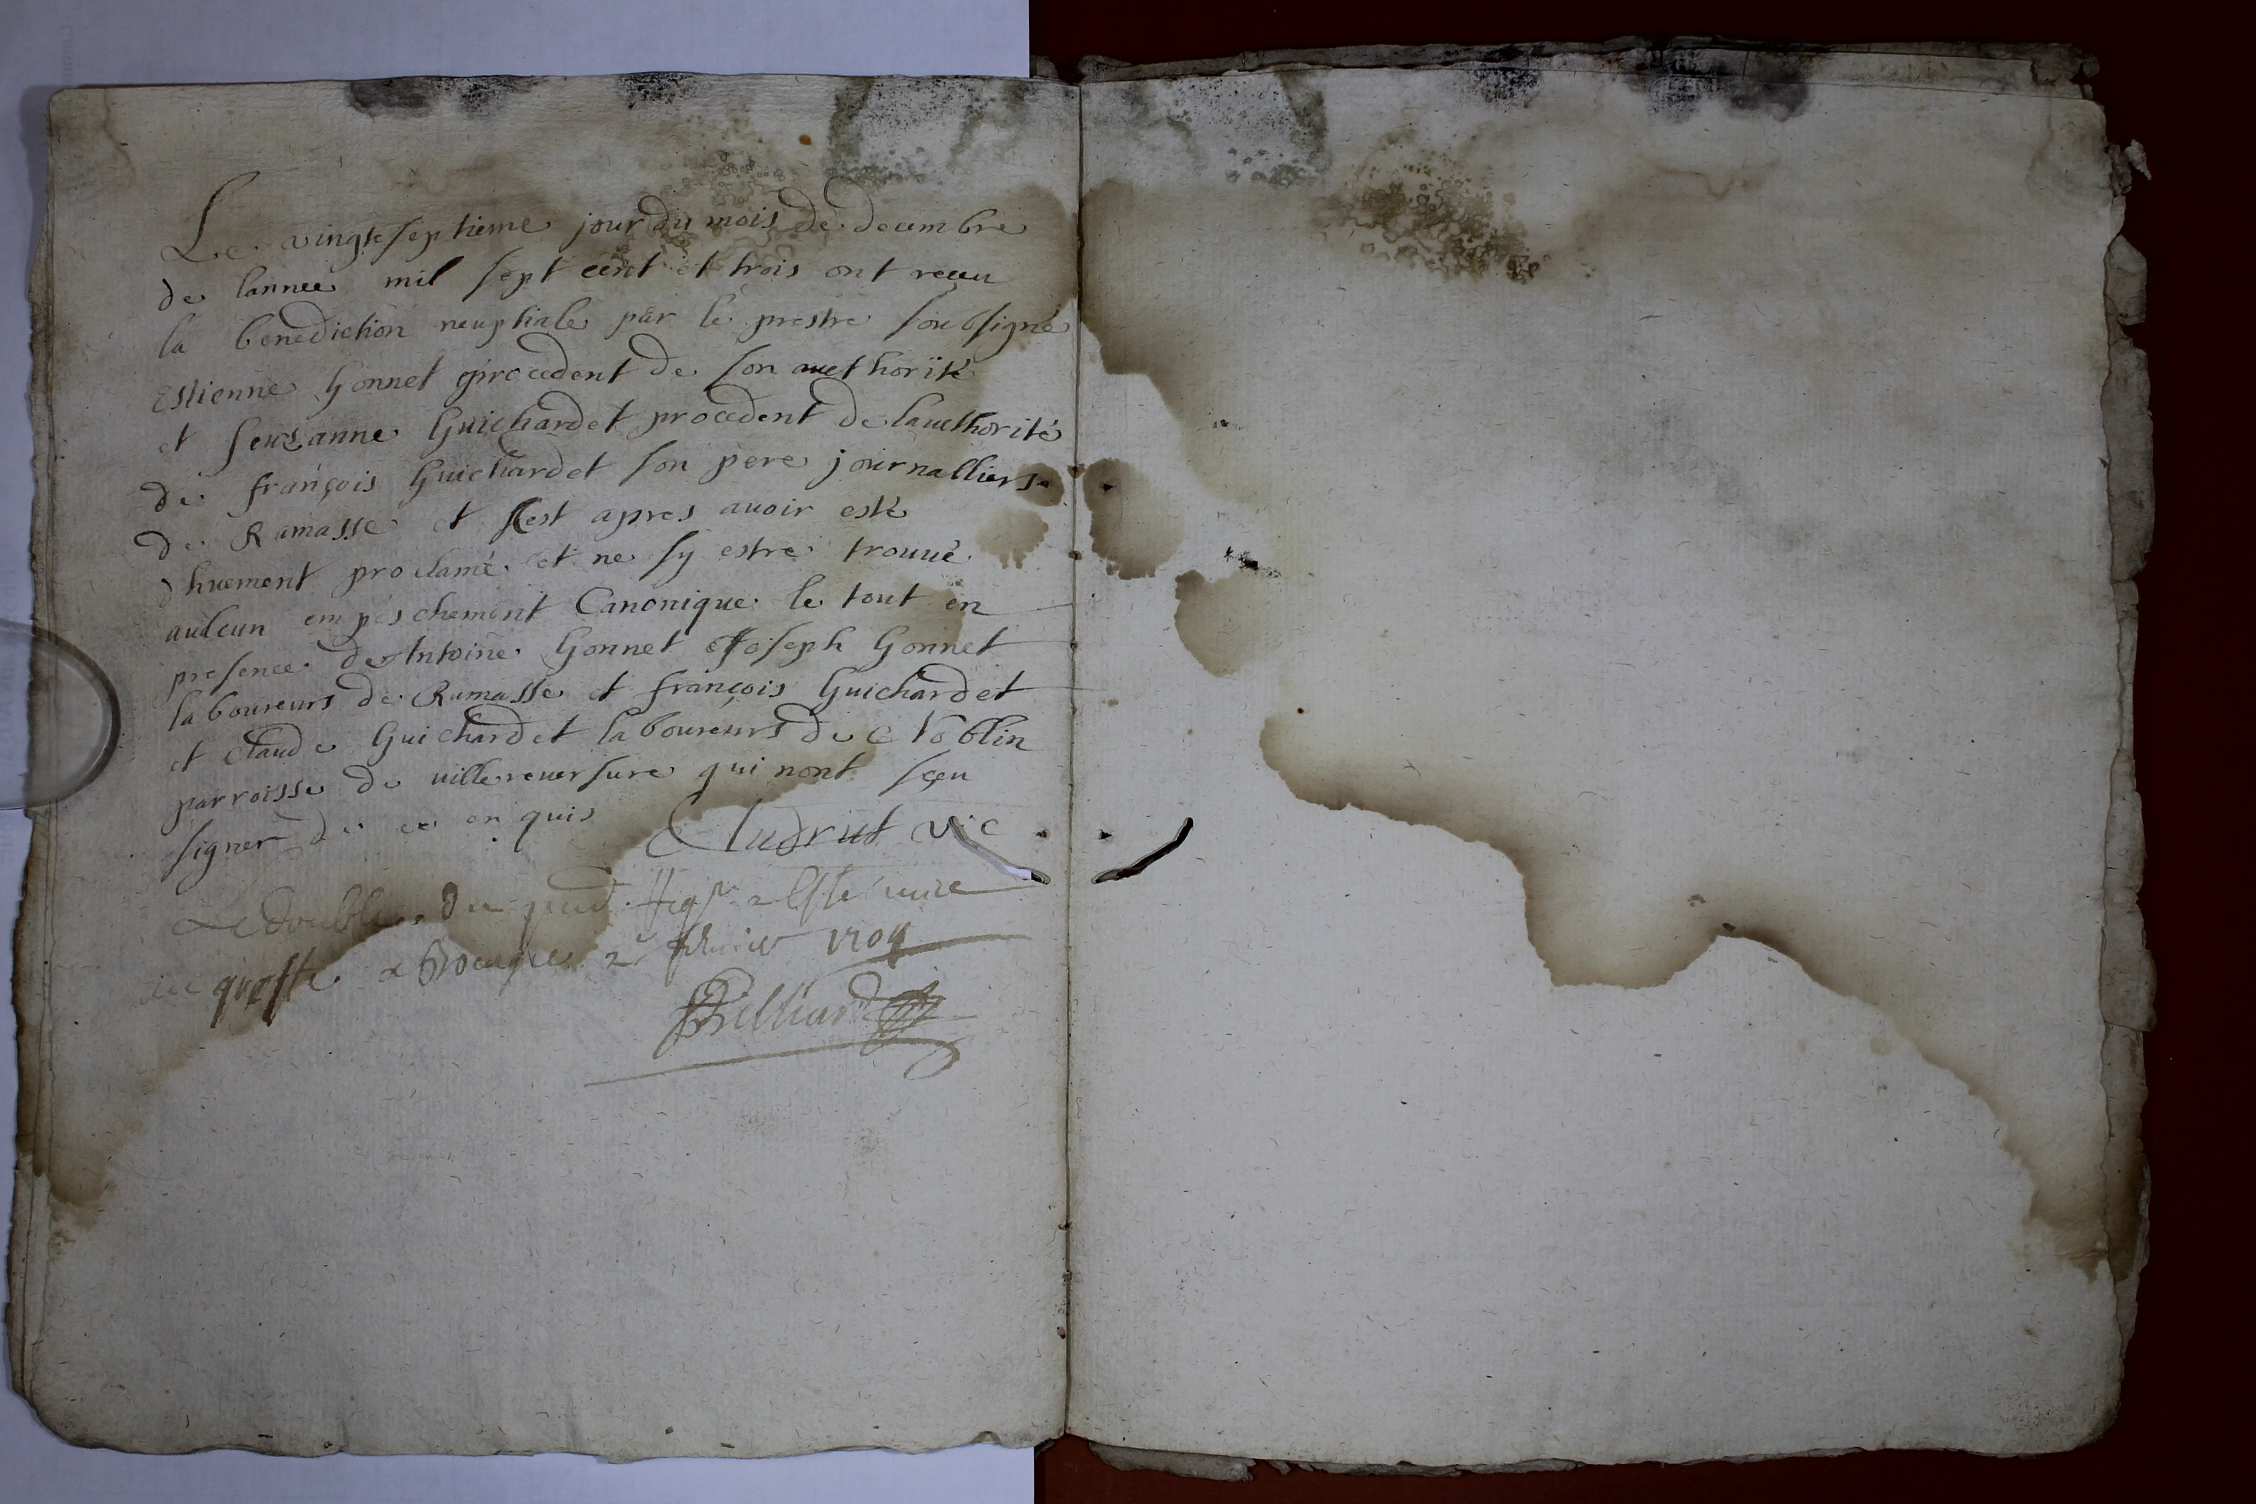 Le vingtseptieme jour du mois de decembre
de lannee mil sept cent et trois ont receu
la benediction neuptiale par le prestre soubsigné
Estienne Gonnet procedent de son aucthorité
et seuzanne Guichardet procedent de laucthorité
de françois Guichardet son pere journalliers
de Ramasse et cest apres avoir esté
dhuement proclamé et ne sy estre trouvé
aulcun empeschement Canonique le tout en
presence de Antoine Gonnet Joseph Gonnet
laboureurs de Ramasse et françois Guichardet
et Claude Guichardet laboureurs de Noblin
parroisse de villereversure qui nont sçeu
signer de ce enquis
Le double du
au greffe a Bourg le 2 février 1704